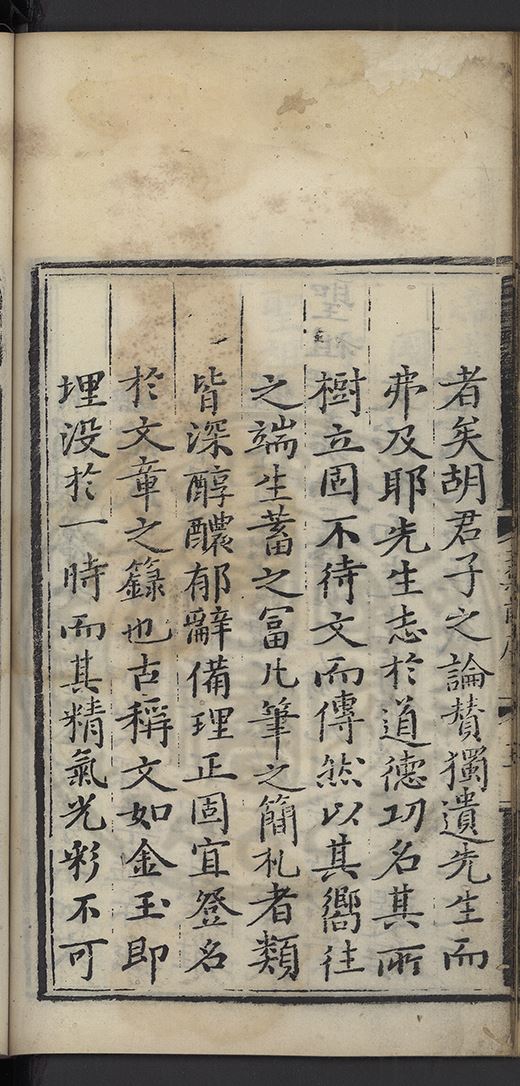 者矣胡君子之論賛獨遺先生而
弗及耶先生志於道德功名其所
樹立固不待文而傳然以其嚮往
之端生蓄之富凡筆之簡札者類
皆深醇醲郁辭備理正固宜登名
於文章之籙也古稱文如金玉即
埋没於一時而其精氣光彩不可